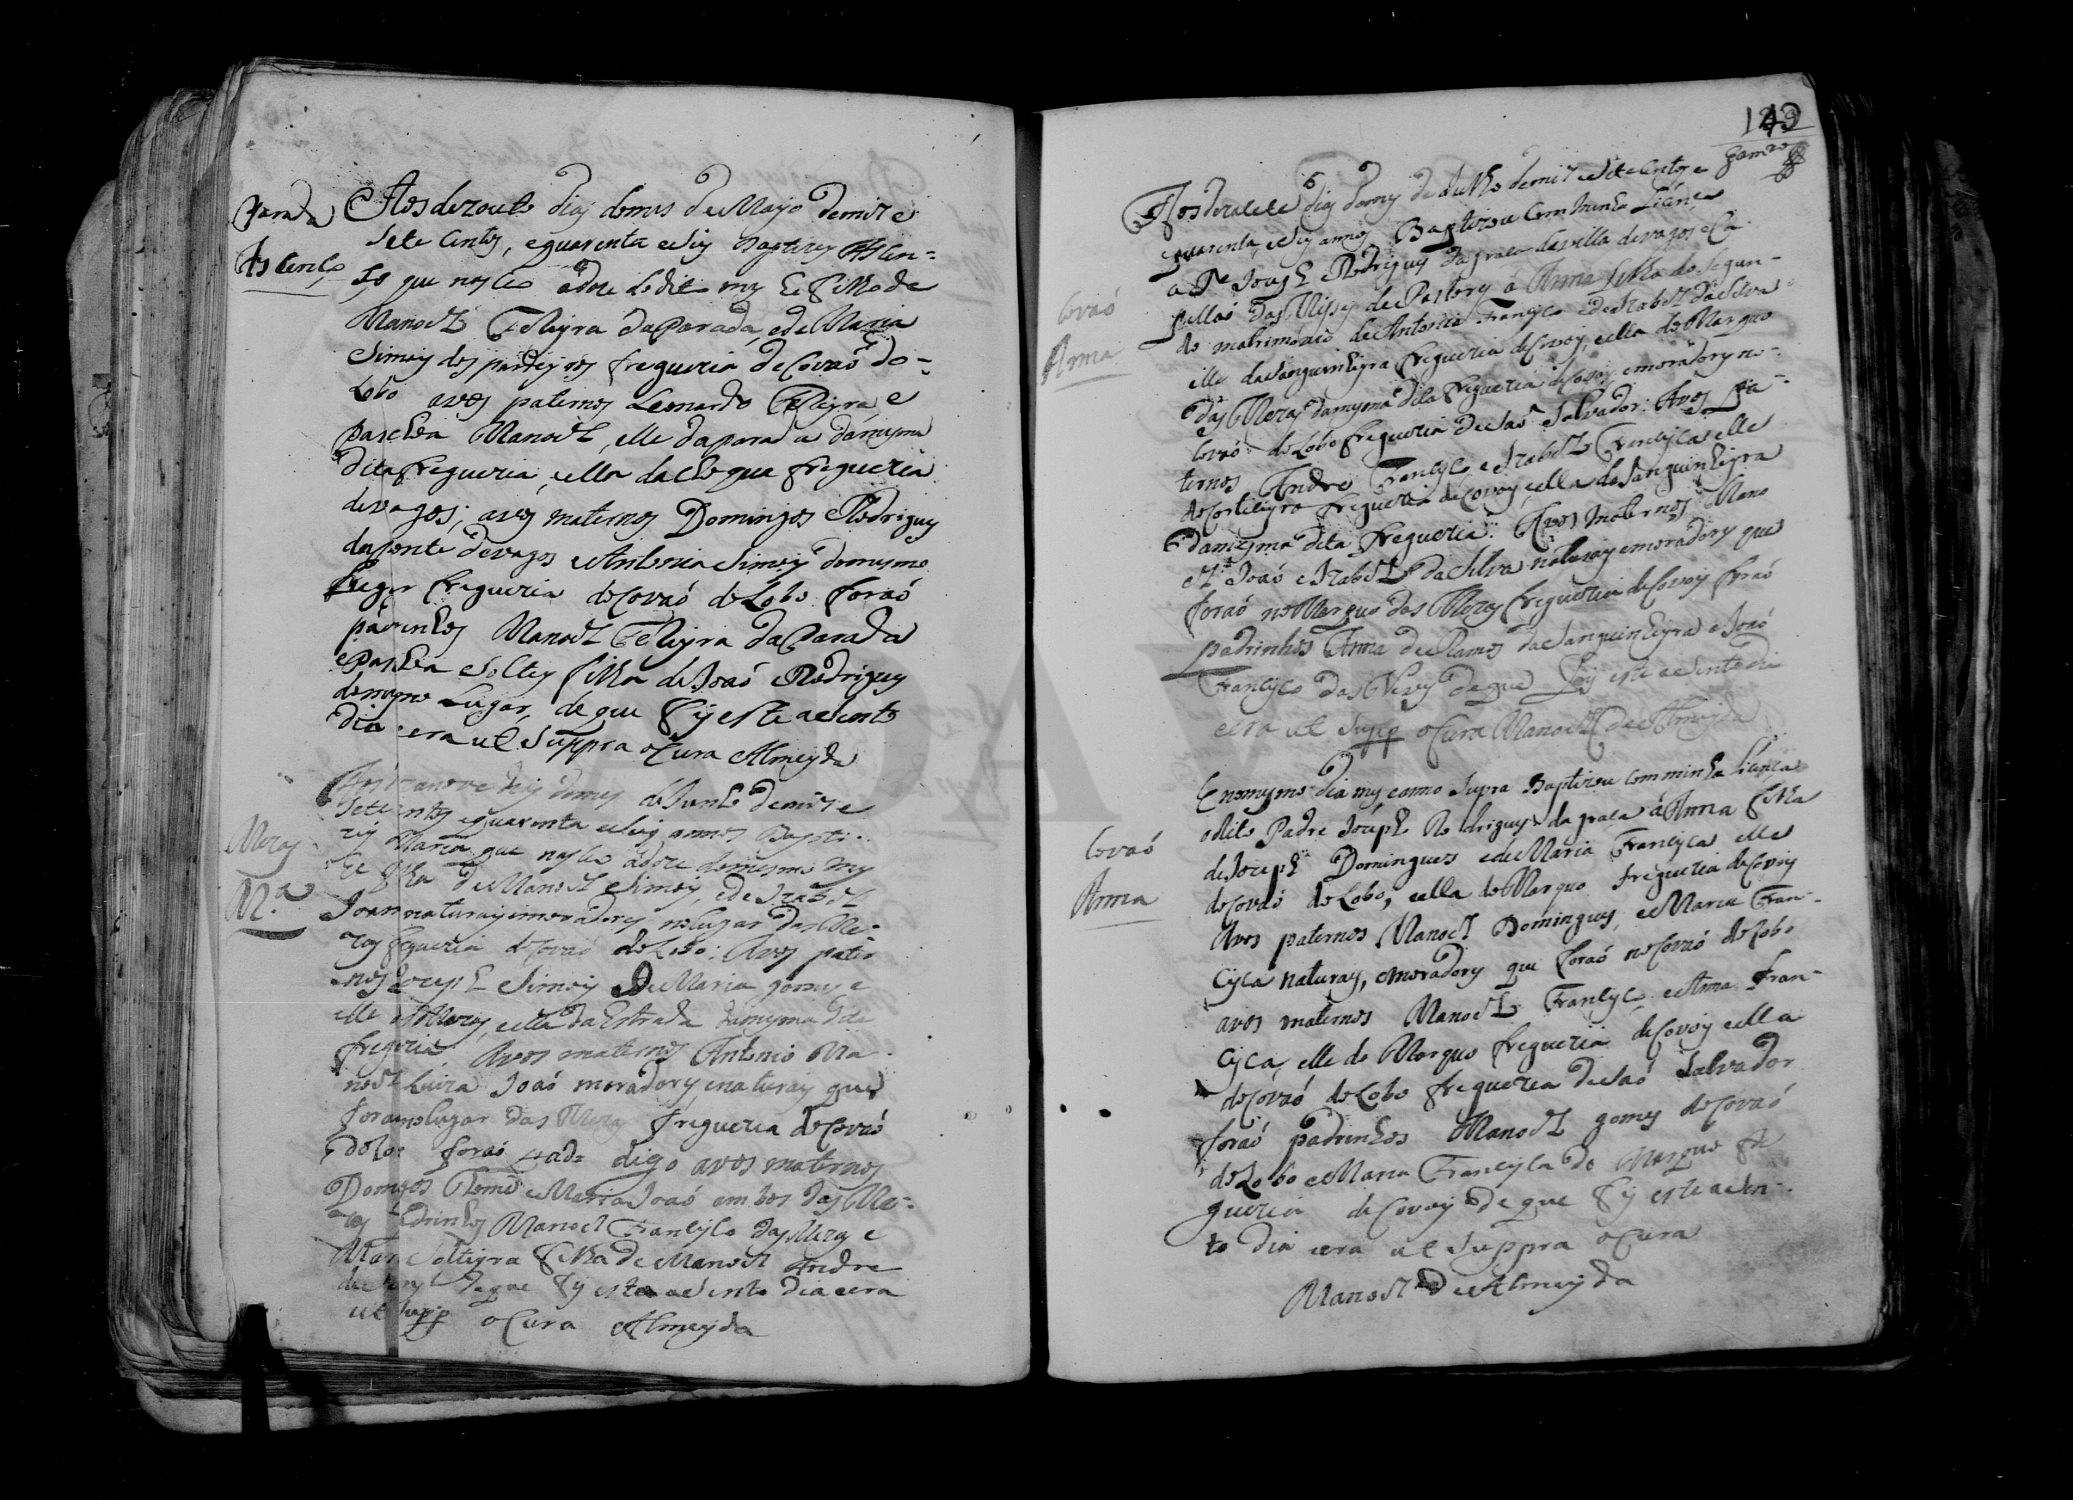 Parada
Ascenço
Aos dezouto dias do mes de Mayo de mil e
sete centos, e quarenta e seis baptizey Ascen-
so que nasceo a doze do dito mes he filho de
Manoel Telleyra da Parada, e de Maria
Simois dos pardeyros freguezia de Covaõ do
Lobo avos paternos Leonardo Telleyra, e
Paschoa Manoel, elle da parada da mesma
dita freguezia, e ella da freguezia
de vagos; avos maternos Domingos Rodrigues
da ponte de vagos e Antonia Simois do mesmo
lugar freguezia de Covaõ do Lobo foraõ
padrinhos Manoel Telleyra da Parada
e Paschoa solteyra filha de Joaõ Rodrigues
do mesmo Lugar, de que fis este acento
dia era ut suppra o Cura Almeyda
Mezas
M.ª
dias do mes de Junho de mil e
sete centos e quarenta e seis annos Bapti-
zey Maria que nasceo a doze do mesmo mes
he filha de Manoel Simois, e de Izabel
Joaõ naturais e moradores no lugar das Me-
zas freguezia de Covaõ do Lobo: Avos pater
nos Joseph Simois e Maria gomes e
elle das Mezas, e ella da Estrada da mesma dita
freguezia Avos maternos Antonio Ma
noel Luiza Joaõ moradores e naturais que
foraõ no lugar das Mezas freguezia de Covaõ
do Lo: foraõ pad: digo avos maternos
Domgos Thomé e Maria Joaõ ambos das Me-
zas Padrinhos Manoel Francisco das Mezas e
Maria Solteyra filha de Manoel Andre
de que fis este acento dia e era
ut supp o Cura Almeyda
142
Gomes
Covaõ
Anna
Aos dezasete dias do mes de Julho de mil e sete centos e
quarenta, e seis annos Baptizou com minha licença
o Pe Joseph Rodrigues da graça da villa de vagos e Ca-
pellaõ das Missas de Pastory a Anna filha do segun-
do matrimonio de Antonio Francisco e de Izabel da Silva
elle da Sanguinheyra freguezia de Covois, e ella do Marquo
das Mezas da mesma dita freguezia de Covois e moradores no
Covaõ do Lobo freguezia de Saõ Salvador: Avos pa-
ternos Andre Francisco e Izabel Francisca elle
da Corticeyra freguezia de Covois, e ella da Sanguinheyra
da mesma dita freguezia: Avos maternos Mano
el Joaõ e Izabel da Silva naturais e moradores que
foraõ no Marquo das Mezas freguezia de Covois foraõ
padrinhos Anna de Ramos da Sanguinheyra e Joaõ
Francisco das Neves de que fis este acento dia
e era ut supp o Cura Manoel de Almeyda
Covaõ
Anna
E no mesmo dia mes e anno supra Baptizou com minha licença
o dito Padre Joseph Rodrigues da graça a Anna filha
de Joseph Domingues e de Maria Francisca elle
de Covaõ do Lobo, e ella do Marquo freguezia de Covois
Avos paternos Manoel Domingues, e Maria Fran-
cisca naturais, e moradores que foraõ no Covaõ do Lobo
avos maternos Manoel Francisco e Anna Fran-
cisca, elle do Marquo freguezia de Covois e ella
de Covaõ do Lobo freguezia de Saõ Salvador
foraõ padrinhos Manoel gomes de Covaõ
do Lobo e Maria Francisca do Marquo fre
guezia de Covois de que fis este acen-
to dia e era ut suppra o Cura
Manoel de Almeyda